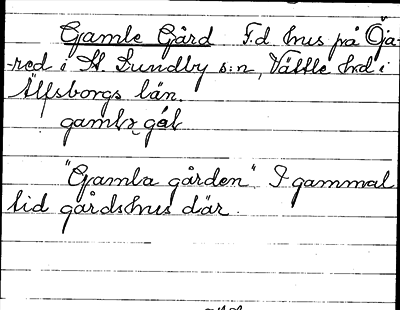 Gamle Gård F.d. hus på Öja-
-red i St. Lundby s:n, Vättle hd i
Älfsborgs län.
"Gamla gården". I gammal
tid gårdshus där.